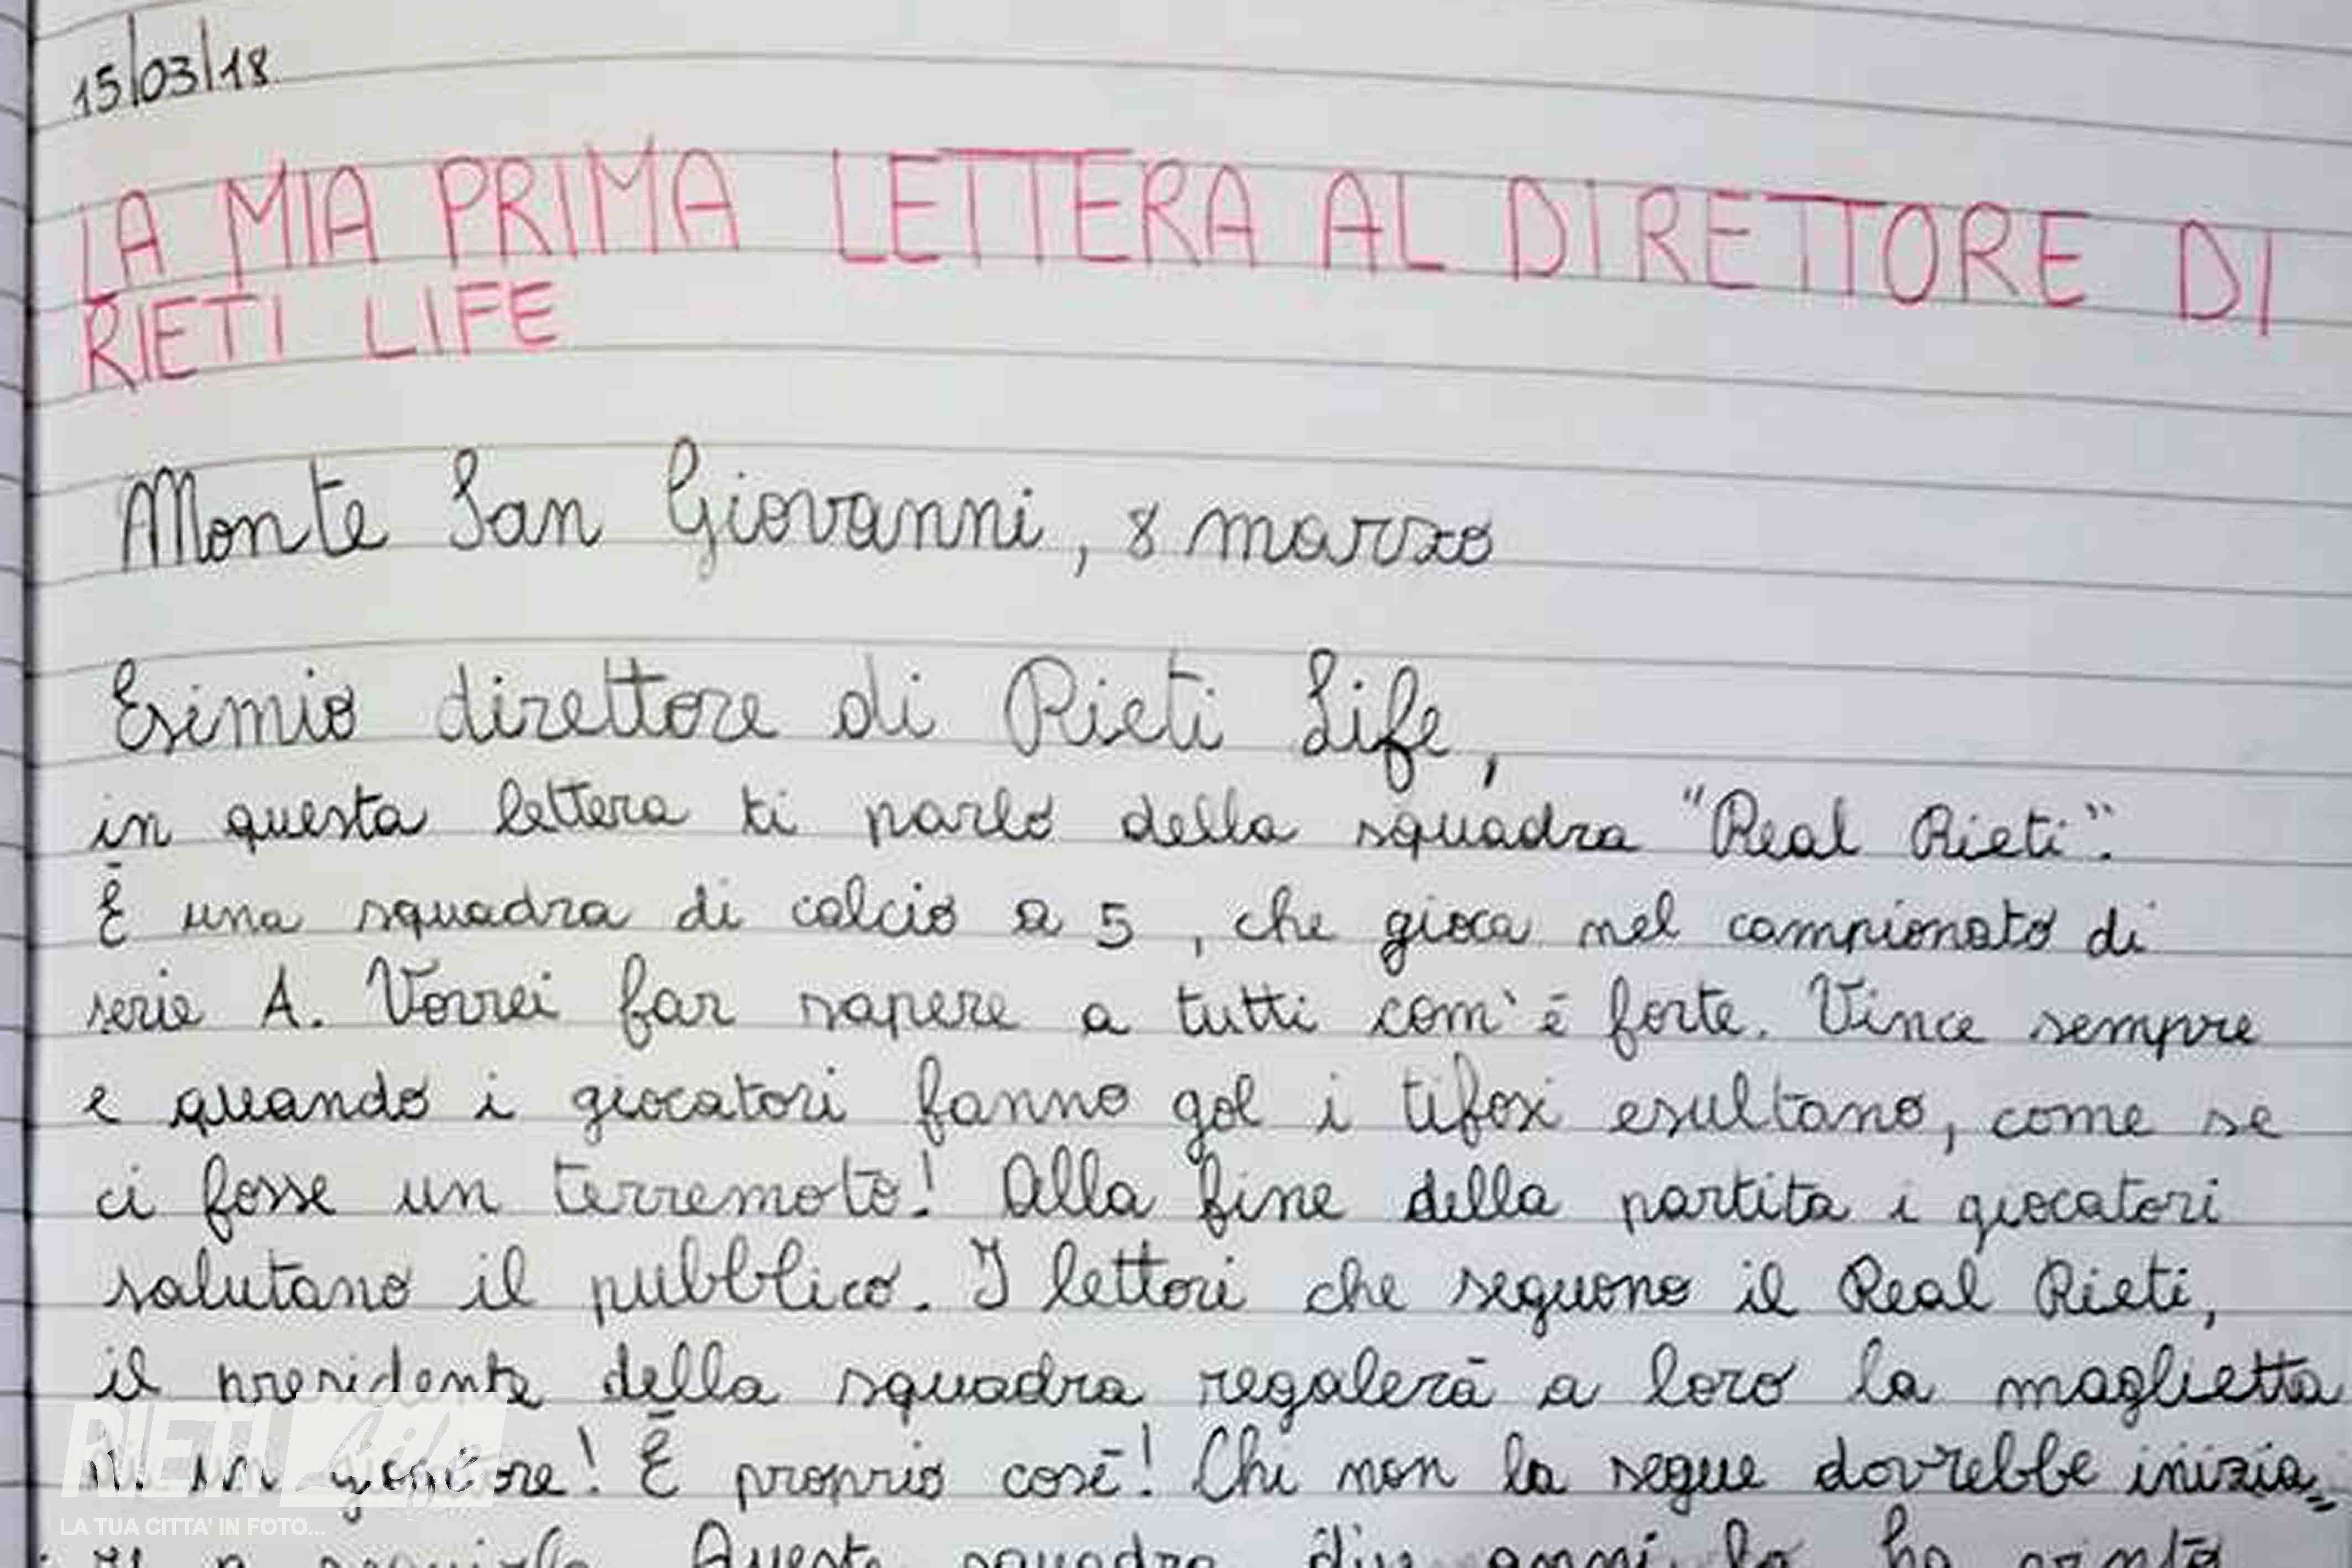 15/03/18
LA MIA PRIMA LETTERA AL DIRETTORE DI
RIETI LIFE
Monte San Giovanni, 8 marzo
Esimio direttore di Rieti Life,
in questa lettera ti parlo della squadra "Real Rieti".
È una squadra di calcio a 5, che gioca nel campionato di
serie A. Vorrei far sapere a tutti com'è forte. Vince sempre
e quando i giocatori fanno gol i tifosi esultano, come se
ci fosse un terremoto! Alla fine della partita i giocatori
salutano il pubblico. I lettori che seguono il Real Rieti,
il presidente della squadra regalerà a loro la maglietta
di un giocatore! È proprio così! Chi non la segue dovrebbe inizia=
re a seguirla. Questa squadra due anni fa ha vinto
RIETI Life
LA TUA CITTA' IN FOTO...